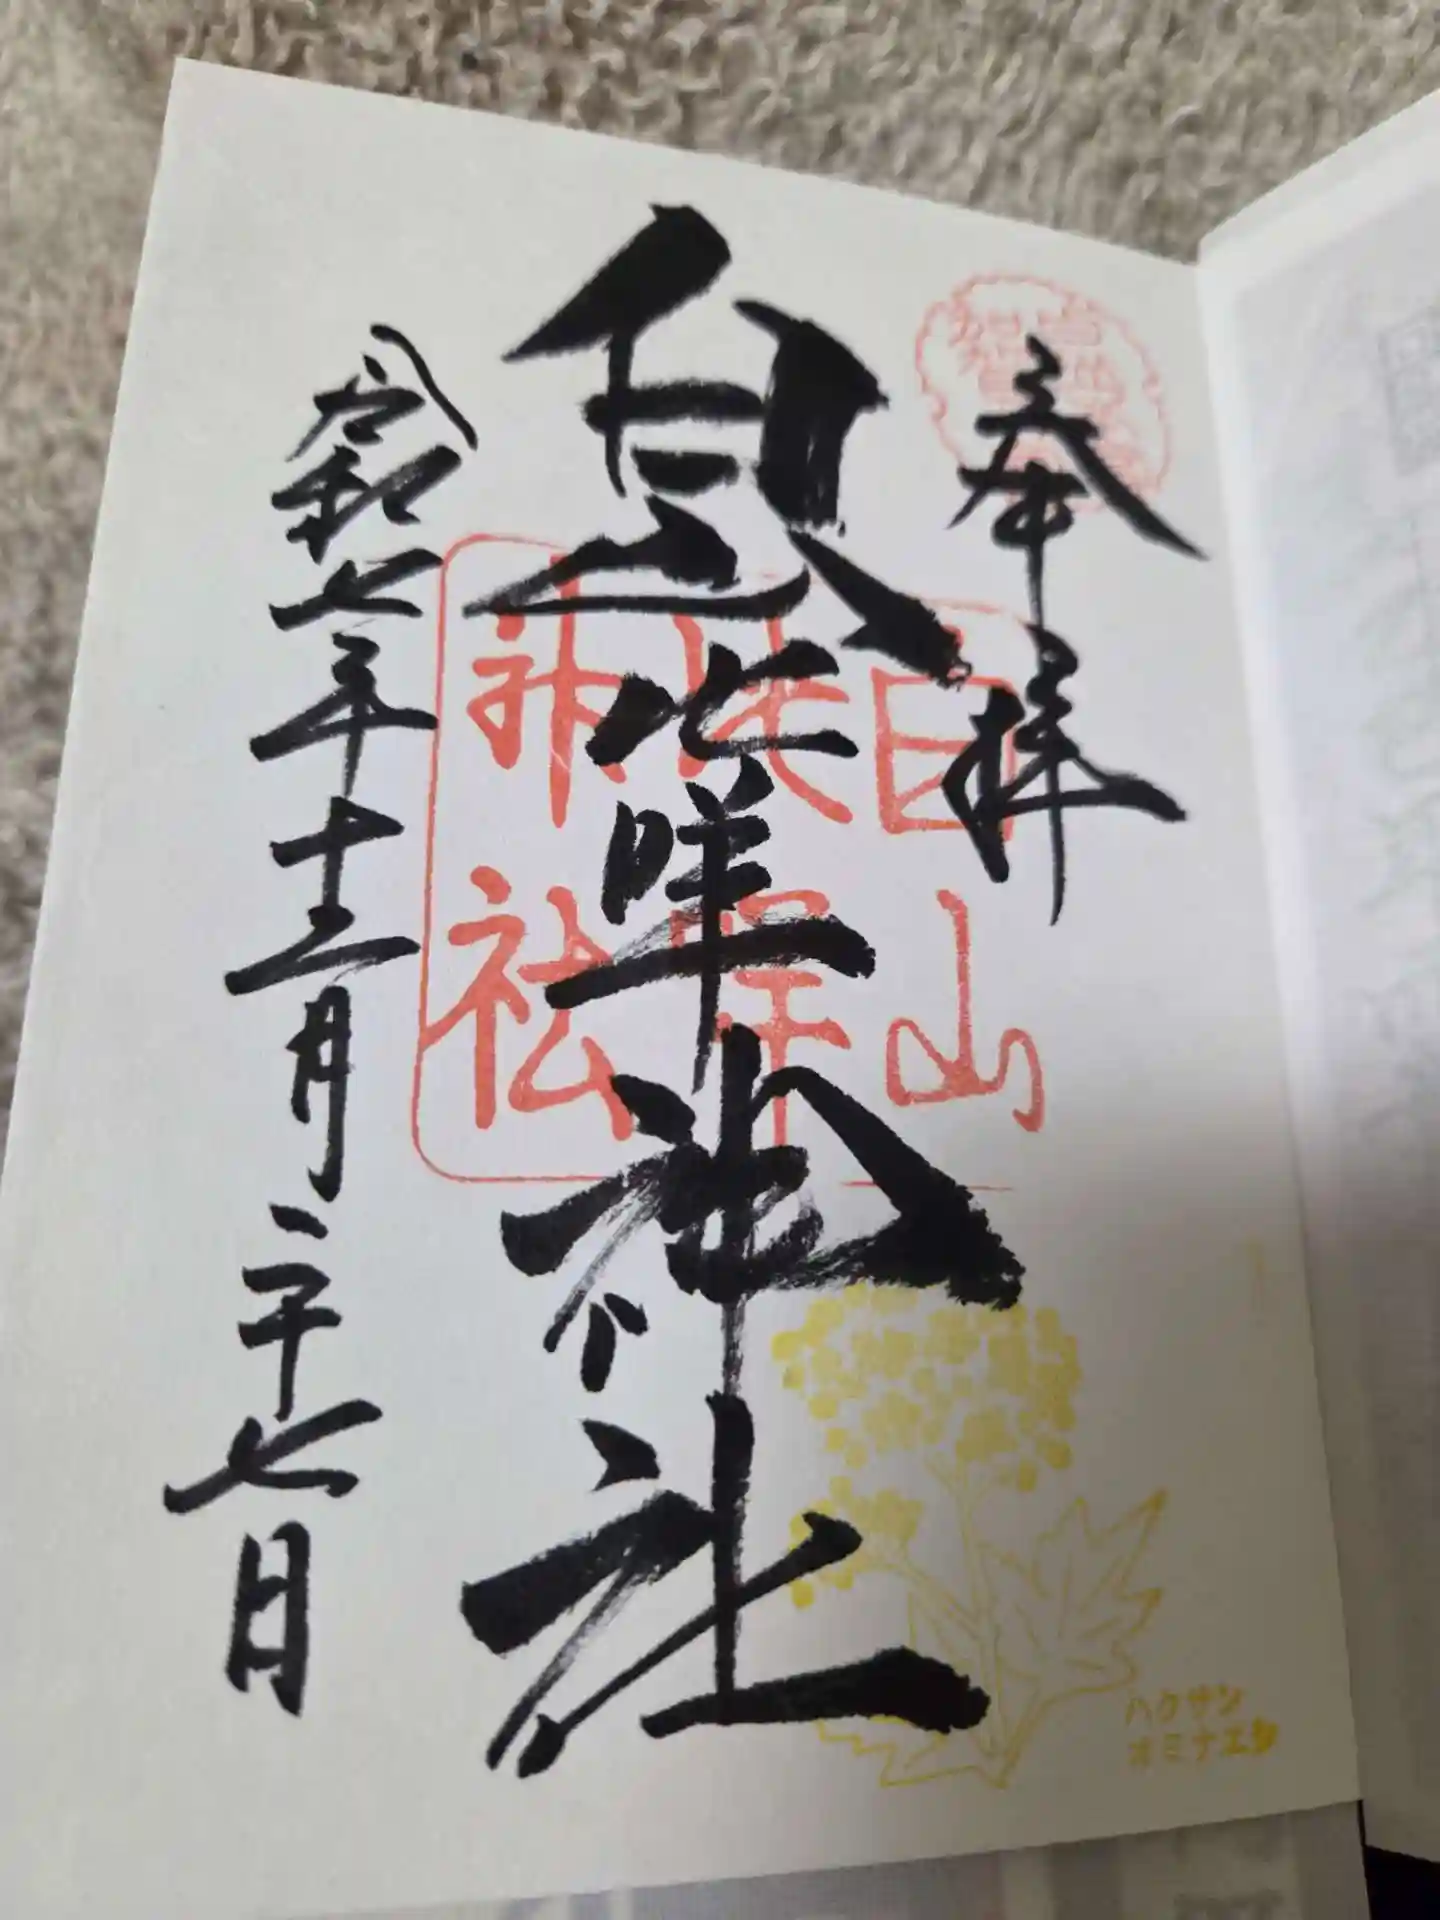 奉拝
白山比咩神社
令和七年十二月二十七日
白山
比咩
神社
ハクサン
オミナエシ